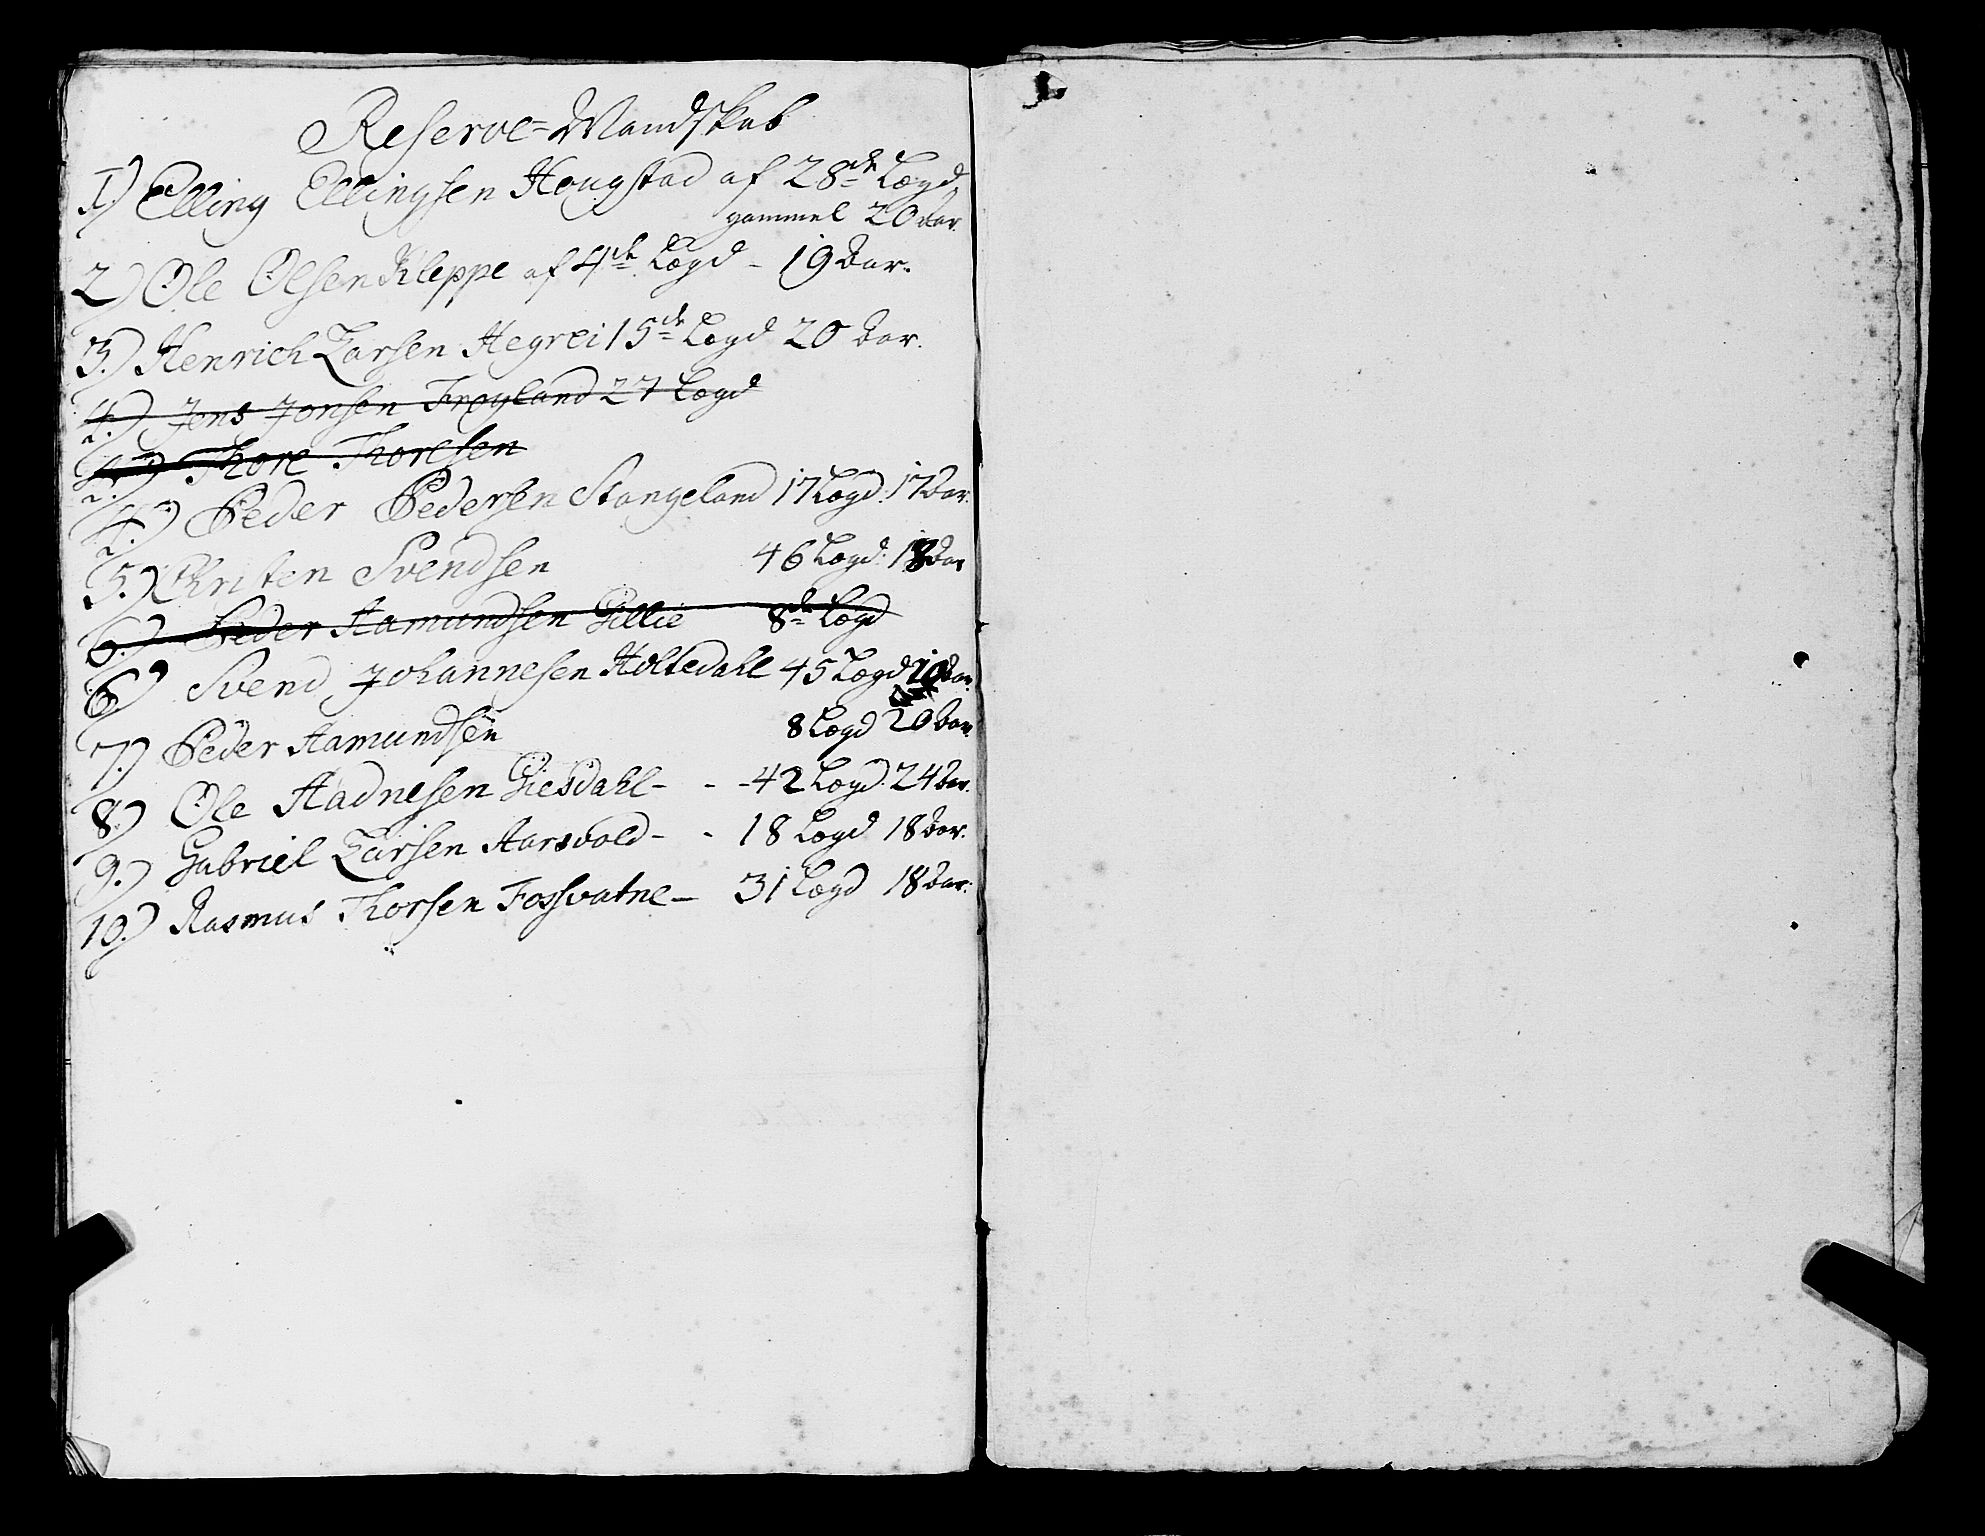 Reserve=Mandskab
1.) Elling Ellingsen Hougstad af 28de Lægd,
gammel 20 aar.
2) Ole Olsen Kleppe af 4de Lægd - 19 aar.
3.) Henrich Larsen Hegrei 15de Lægd 20 aar.
4.) Jens Jonsen Frøyland 27 Lægd
Thore Thoresen
4.) Peder Pedersen Stangeland 17 Lægd: 17 aar.
5.) Christen Svendsen 46 Lægd: 18 aar
6.) Peder Aamundsen Gillie 8de Lægd
6) Svend Johannesen Holtedahl 45 Lægd aar.
7.) Peder Aamundsen 8 Lægd 20 aar.
8.) Ole Aadnesen Giesdahl - - - 42 Lægd: 24 aar.
9.) Gabriel Larsen Aarsvold - - 18 Lægd 18 aar.
10.) Rasmus Thorsen Fossvatne - 31 Lægd 18 aar.